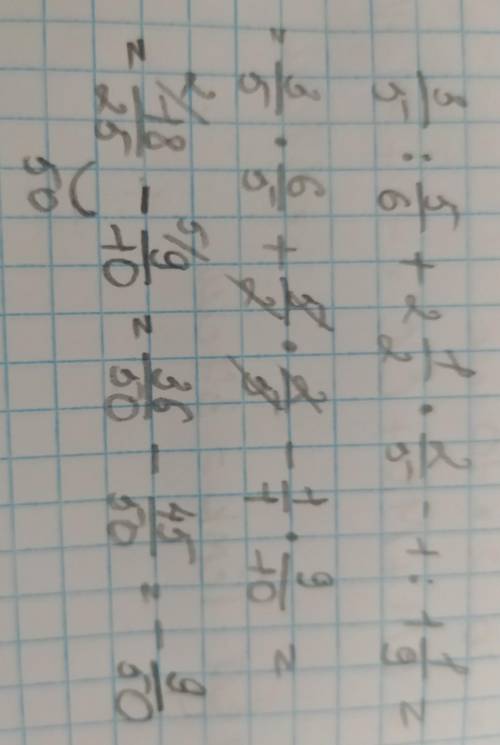 3/5 : 5/6 + 2 1/2 · 2/5 - 1 : 1 1/9 =
= 3/5 · 6/5 + 5/2 · 2/5 - 1/1 · 9/10 =
= 2/ 18/25 - 5/ 9/10 = 36/50 - 45/50 = - 9/50
50